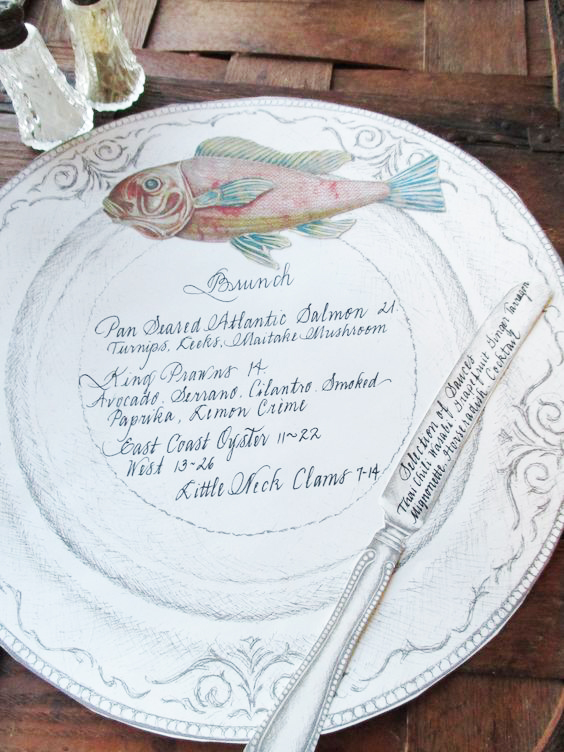 Brunch
Pan Seared Atlantic Salmon 21.
Turnips, Leeks, Maitake Mushroom
King Prawns 14
Avocado. Serrano. Cilantro. Smoked
Paprika, Lemon Crime
East Coast Oyster 11~22
West 13~26
Little Neck Clams 7-14
Selection of Sauces
Thai Chili, Wasabi Grapefruit Ginger Tarragon
Mignonette, Horseradish Cocktail